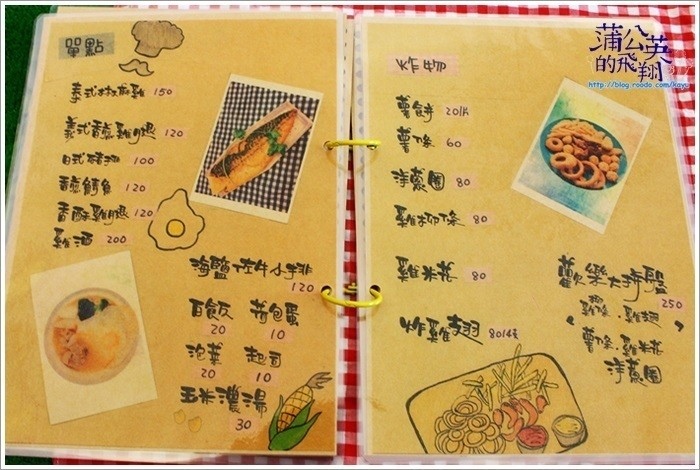 單點
泰式椒麻雞 150
義式香煎雞腿 120
日式豬排 100
香煎鯖魚 120
香酥雞腿 120
雞酒 200
海鹽一夜牛小排
120
白飯 荷包蛋
20 10
泡菜 起司
20 10
玉米濃湯
30
炸物
薯餅 20/片
薯條 60
洋蔥圈 80
雞柳條 80
雞米花 80
炸雞翅 80/4支
歡樂大拼盤
250
雞翅
薯條.雞米花
洋蔥圈
蒲公英
的飛翔
http://blog.roodo.com/kayu